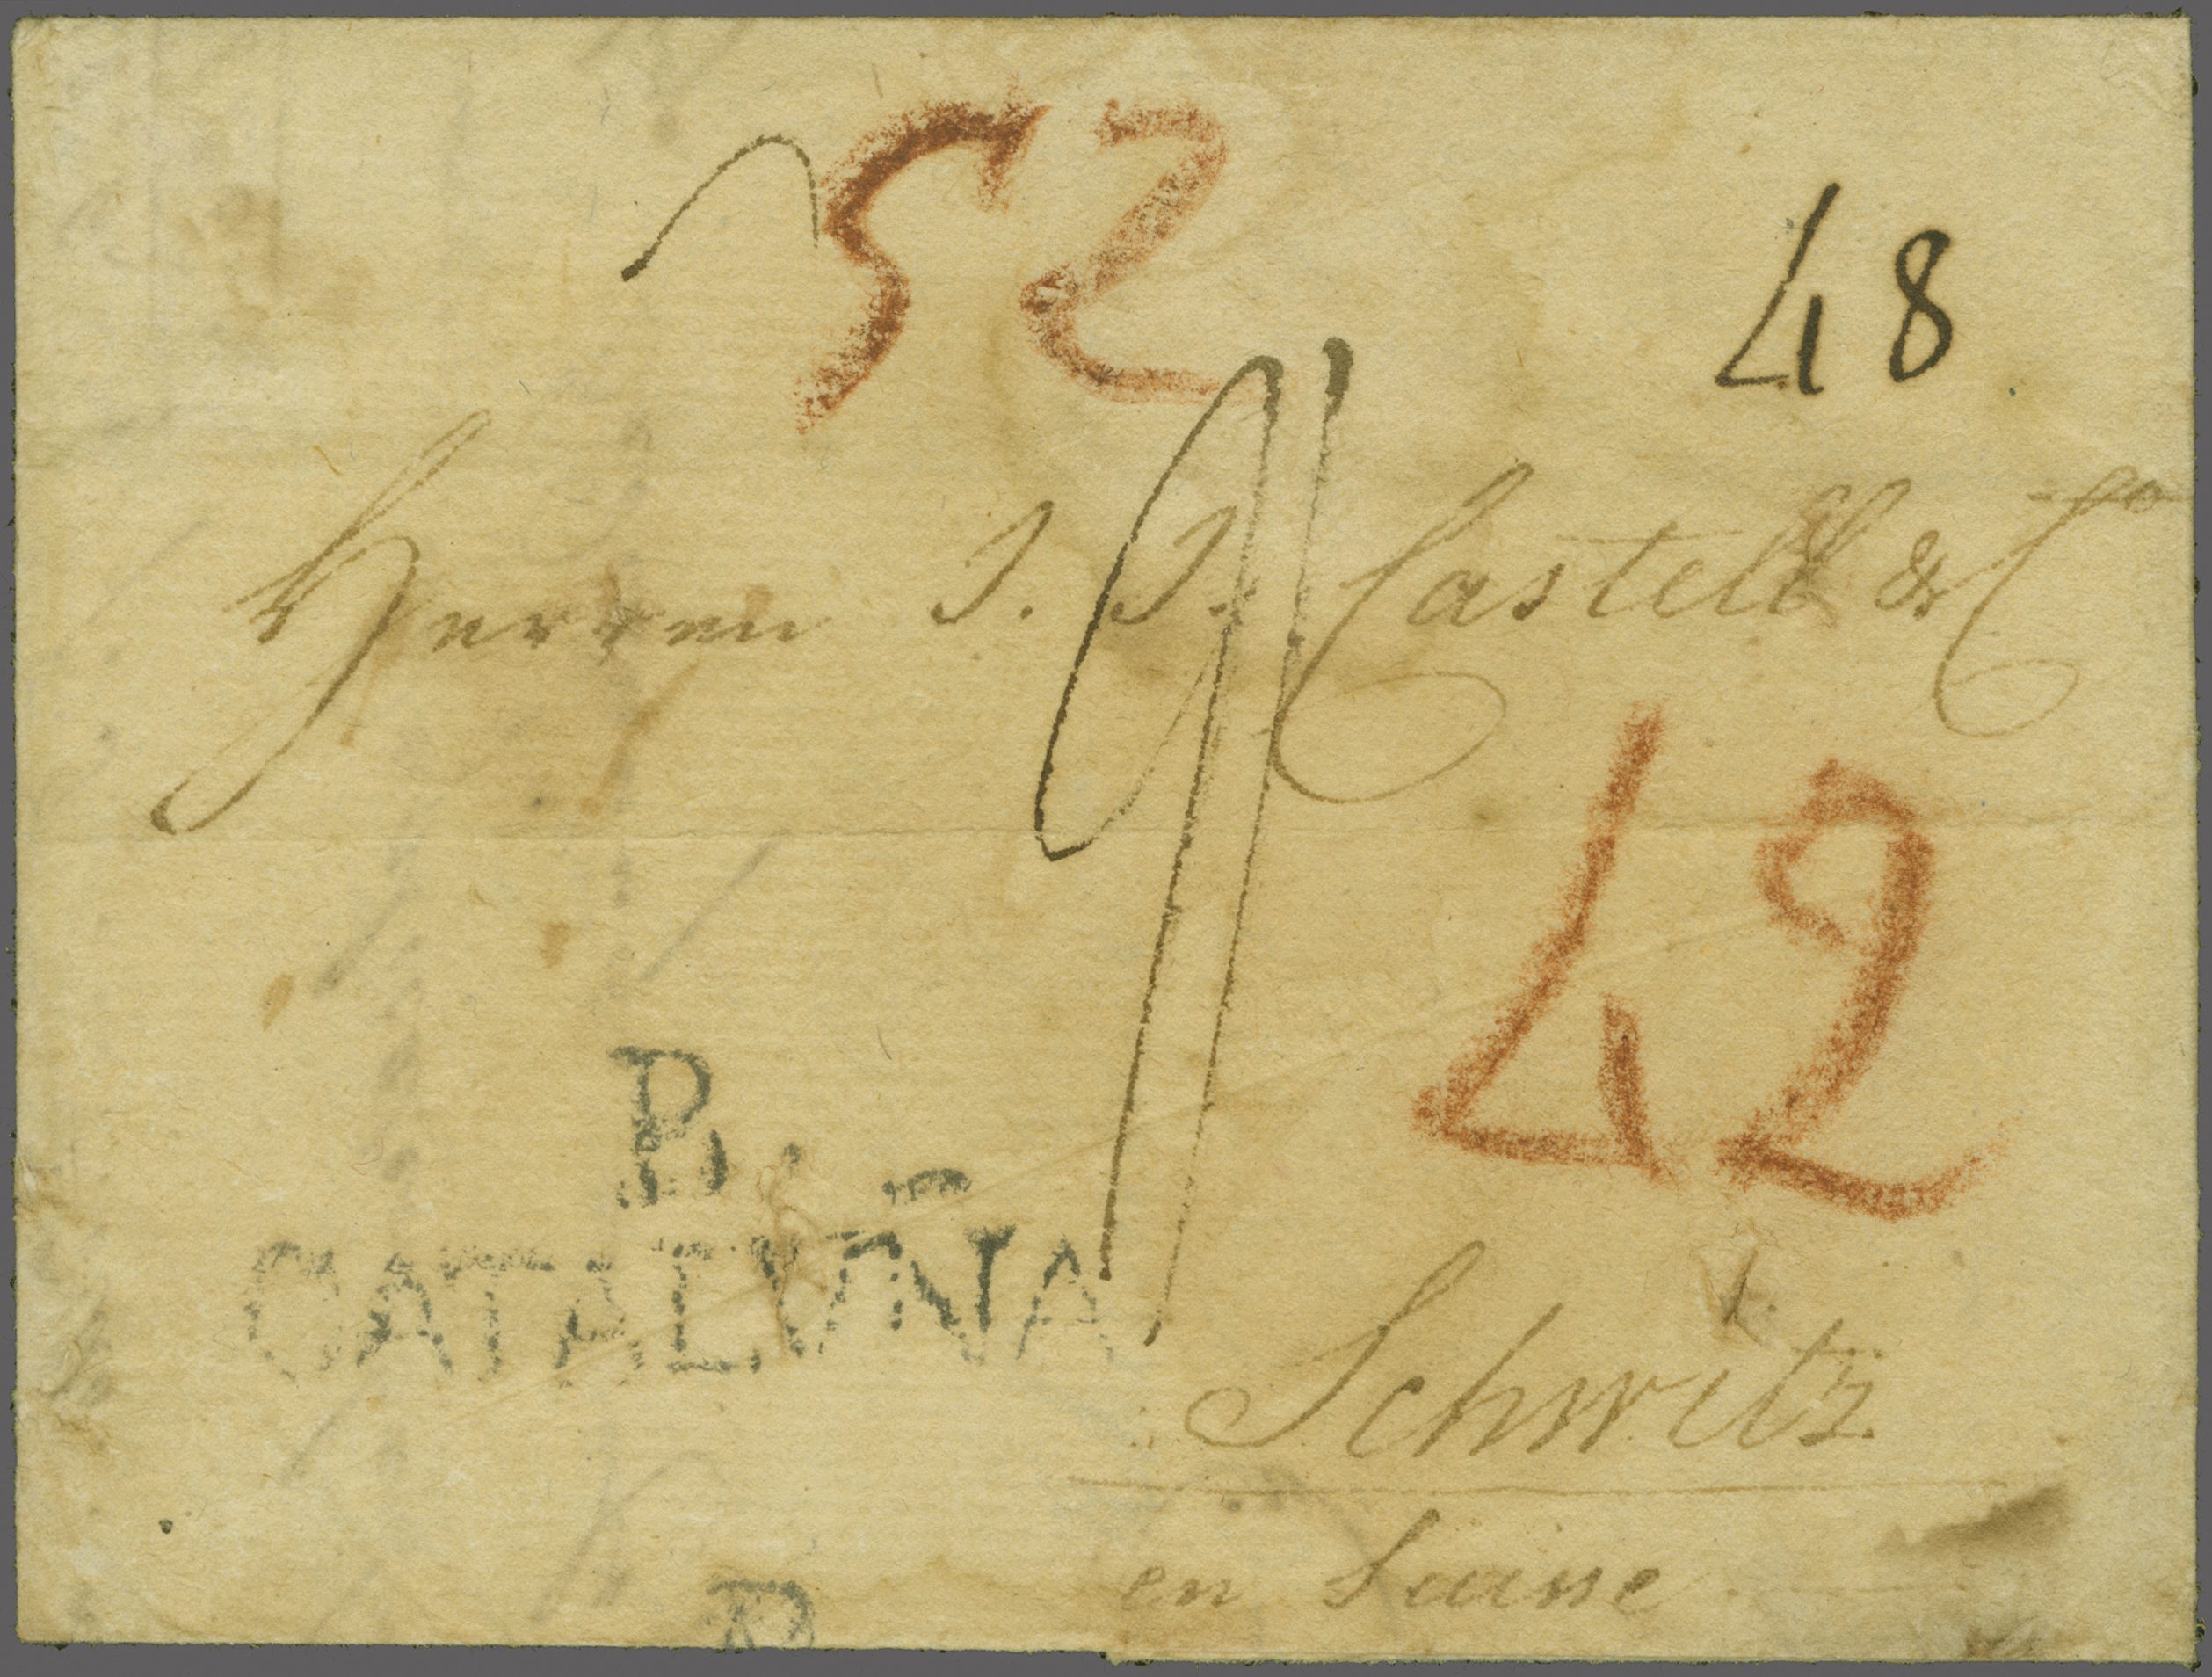 52
48
Herren J. J. Castell & Co
42
B
CATALUÑA
Schwitz
en Suisse
B